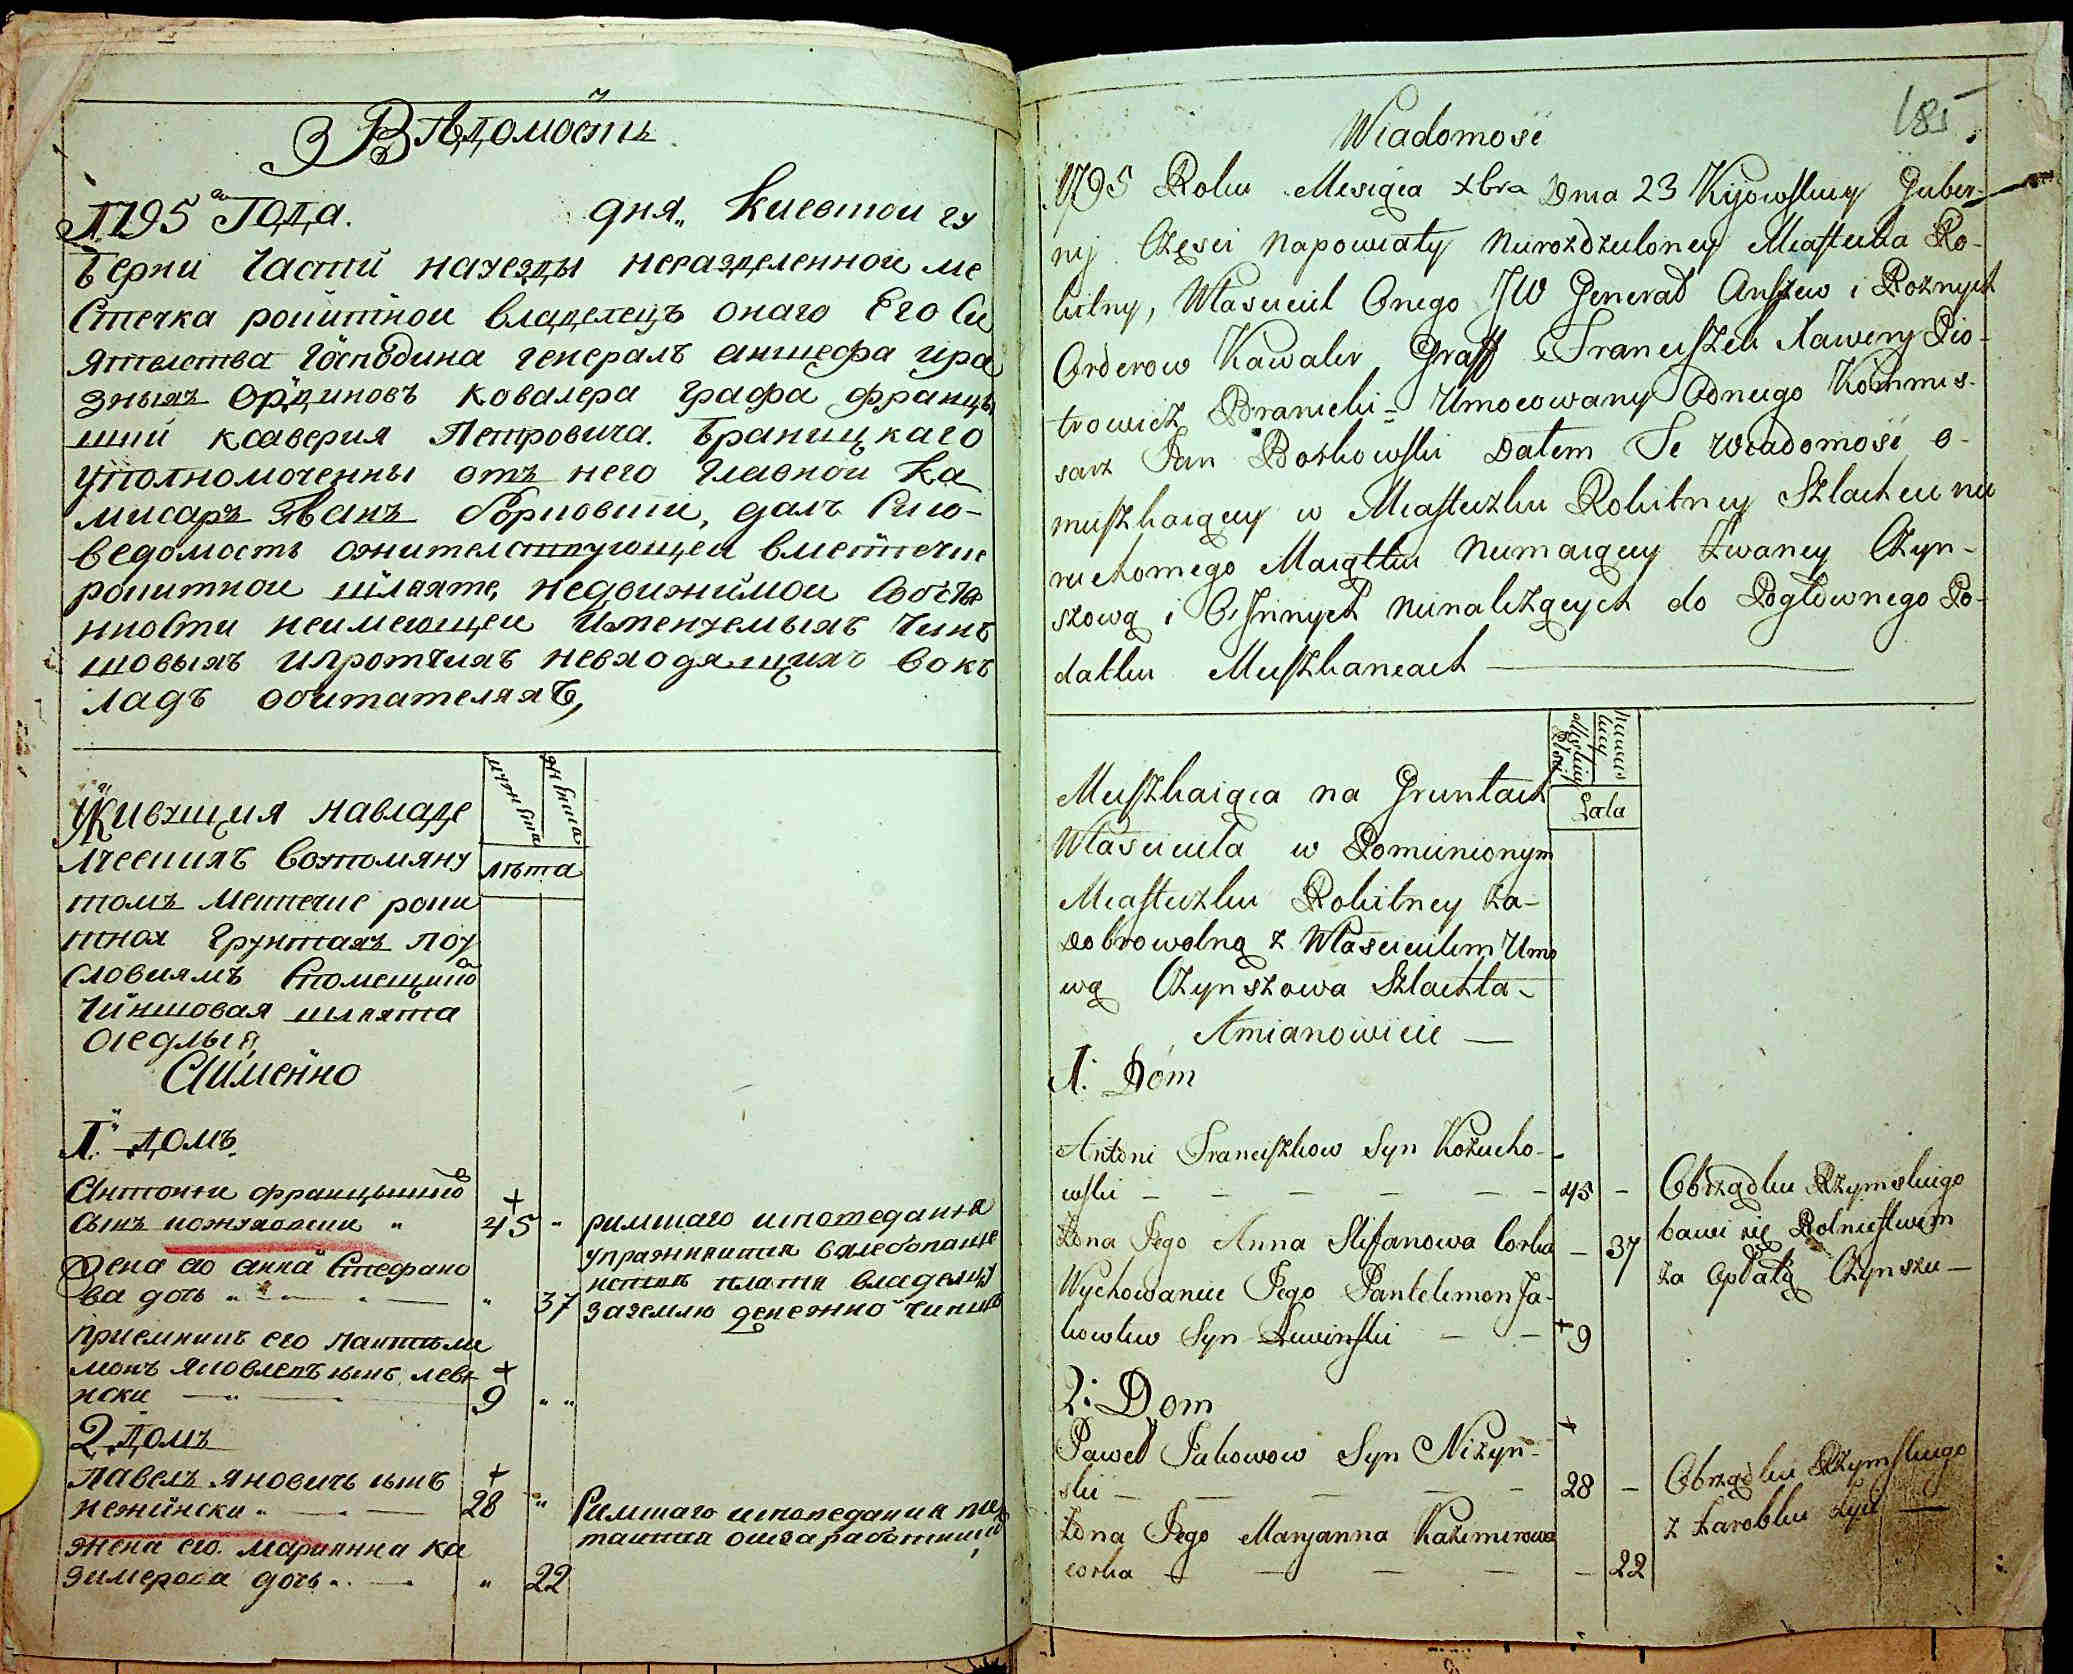 Вѣдомость
1795 года. дня „ Киевской гу
берни Части науезды неразделенной ме
стечка рокитной владелецъ онаго Его Си
ятелства Господина генералъ аншефа ира
зныхъ ординовъ ковалера графа францы
шки ксаверия Петровича Браницкаго
уполномоченны отъ него главной Ка
мисаръ Иванъ борковски, далъ Сию
ведомость ожителствующей вместечке
рокитной шляхте, недвижимой собств
нности неимеющей Именуемыхъ чинъ
шовыхъ ипротчихъ невходящихъ вокъ
ладъ обитателяхъ,
Живущия навладе
лческихъ вовпомяну
томъ местечке роки
тная грунтахъ поу
словиямъ Спомещико
чиншовая шляхта
оседлыя
Аименно
мужеска женска
лѣта
1. домъ
Антонии францышко
сынъ кожуховски „ 45 „ римшаго исповедания
Жена его анна Стефано упражняится вхлебопаше
ва дочь „ 37 нстве платя владелцу
заземлю денежно чиншъ
приемникъ его пантеле
монъ яковлевъ сынъ леви
нски 9 „ „
2 домъ
Павелъ яновичъ сынъ
нежински 28 „ Римшаго исповедания пи
жена его марианна ка таится отзаработки
зимерова дочь „ 22
185
Wiadomość
1795 Roku Miesiąca Xbra Dnia 23 Kijowskiey Guber-
nij Części napowiaty nierozdzieloney Miasteczka Ro-
kitny, Własciciel Onego JW Generał Anszew i Rożnych
Orderow Kawaler Graff Franciszek Xawery Pio-
trowicz Branicki - Umocowany Odniego Kommis-
sarz Jan Borkowski Datem Te Wiadomość o-
mieszkaiącey w Miasteczku Rokitney Szlachcie nie
ruchomego Maiątku Niemaiącey Zwaney Czyn-
szową i O Innych Nienależących do Pogłownego Po-
datku Mieszkancach
Mieszkaiąca na Gruntach
Własciciela w Pomienionym
Miasteczku Rokitney za-
Dobrowolną z Właścicielem Umo
wą Czynszowa Szlachta -
Amianowicie
Lata
1: Dom
Antoni Franciszkow Syn Kożucho-
wski 45 - Obrządku Rzymskiego
Żona Jego Anna Stefanowa Corka - 37 bawi się Rolnictwem
za Opłatą Czynszu -
Wychowaniec Jego Pantelemon Ja-
kowlew Syn Lewinski 9
2: Dom
Paweł Jakowow Syn Niżyn-
ski 28 - Obrządku Rzymskiego
z Zarobku żyie
Żona Jego Maryanna Kazimirowa
corka - 22